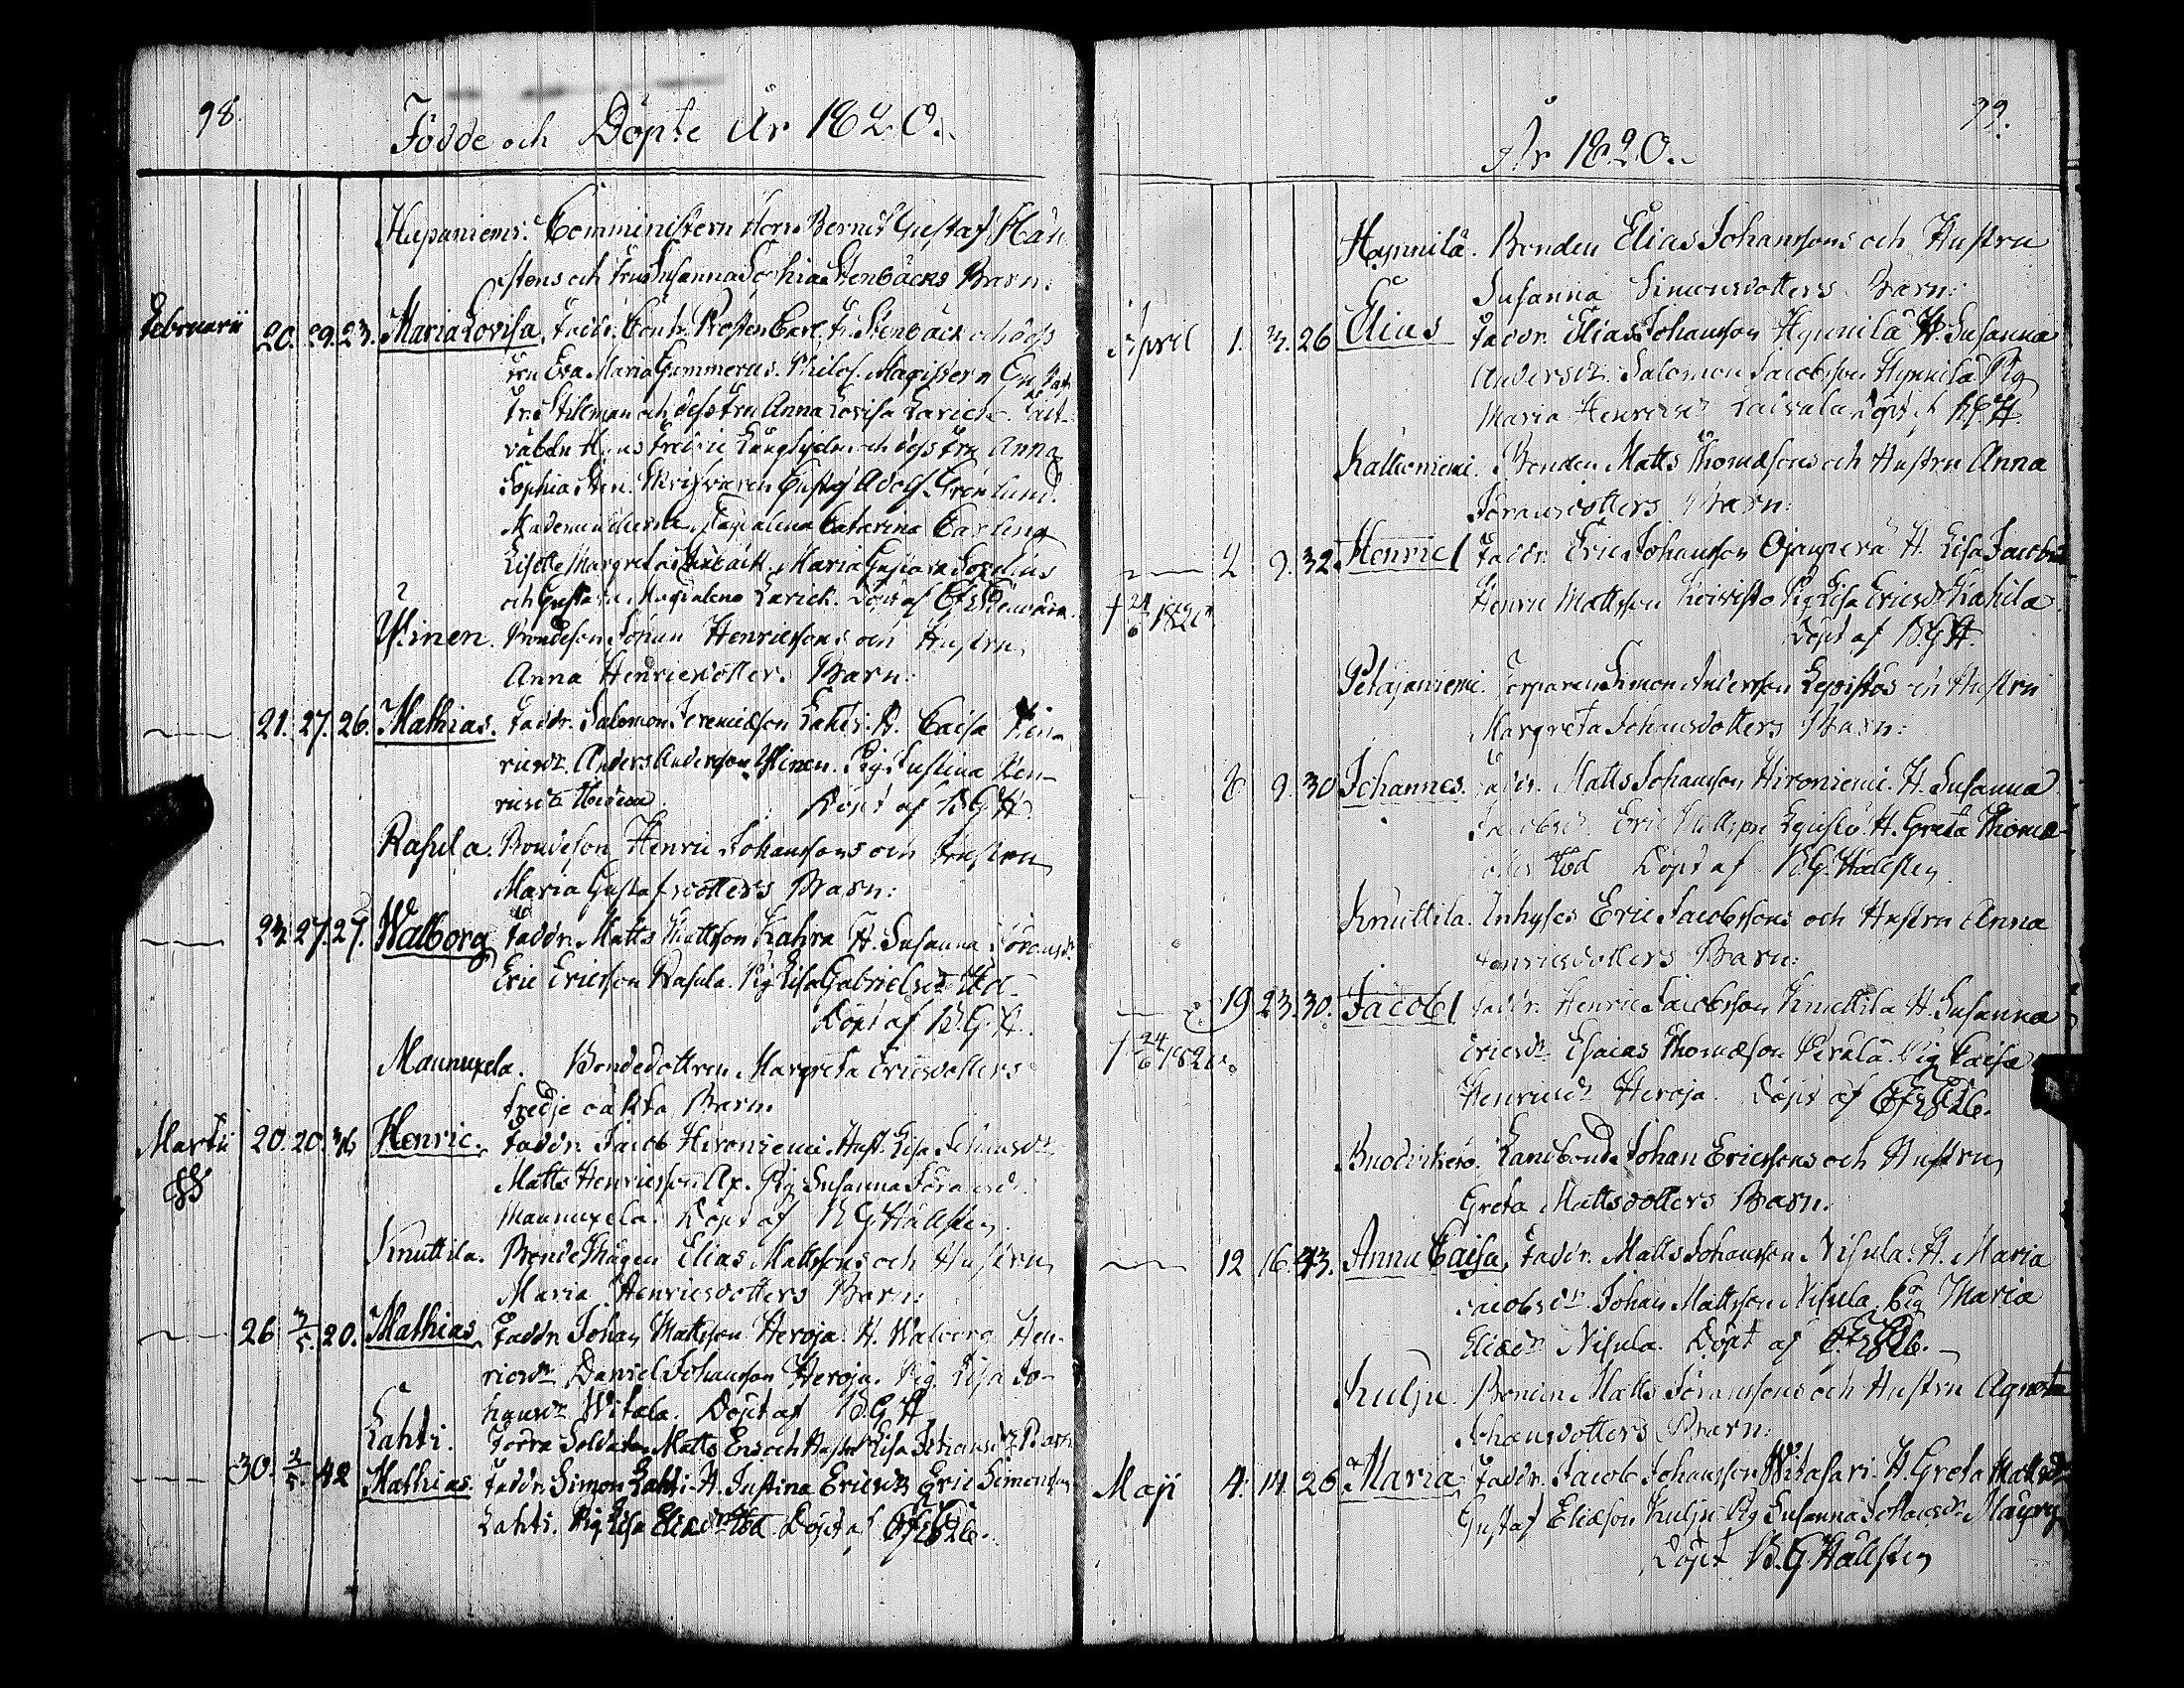 98.
Födde och Döpte År 1820.
Hupaniemi. Comministern Herr Bernd Gustaf Häll
stens och Frus Susanna Sophia Stenbäcks Barn:
Februarii 20. 29. 23. Maria Lovisa. Faddr. Contr. Prosten Carl Fr. Stenbäck och dess
Fru Eva Maria Gummerus. Philos. Magistern
Fr. Stillman och dess Fru Anna Lovisa Farich. Fält-
väbeln Fredric Långhjelm och dess Fru Anna
Sophia Gustaf Adolf Grönlund.
Magdalena Catarina Carling
Lisette Margreta Stenbäck Maria Gustava
och Gustava Magdalena Farich. Döpt af
Ylinen. Bondeson Johan Henricssons och Hustru
Anna Henricsdotters Barn:
21. 27. 26. Mathias. Faddr. Salomon Jeremiæson Lahti. H. Caisa Hen-
ricsdr. Anders Andersson Ylinen. Pig. Justina Hen-
ricsdr Döpt af B.G.H.
Rasula. Bondeson Henric Johanssons och Hustru
Maria Gustafsdotters Barn:
23. 27. 27. Walborg Faddr. Matts Mattsson Kahra H. Susanna Göransdr.
Eric Ericsson Rasula. Pig. Lisa Gabrielsdr ibd.
Döpt af B.G.H.
Maunuxela. Bondedottren Margreta Ericsdotters
tredje oäkta Barn.
Martii 20. 20. 36 Henric. Faddr. Jacob Hironiemi. Hust. Lisa Johansdr
Matts Henricsson Ax. Pig. Susanna Göransdr
Maunuxela. Döpt af B G Hällsten
Knuttila. Bonde Mågen Elias Mattssons och Hustru
Maria Henricsdotters Barn:
26 20. Mathias Faddr. Johan Mattsson Heroja. H. Walborg Hen-
ricsdr Daniel Johansson Heroja. Pig. Lisa Jo-
hansdr Witala. Döpt af B.G.H.
Lahti. Förra Soldaten Matts Ens och Hustru Lisa Johansdrs Barn
30. 42 Mathias. Faddr. Simon Lahti. H. Justina Ericsdr. Eric Simonsson
Lahti. Pig Lisa Eliædr ibd. Döpt af
99.
År 1820.
Hynnilä. Bonden Elias Johanssons och Hustru
Susanna Simonsdotters Barn:
April 1. 3. 26 Elias Faddr. Elias Johansson Hynnilä H. Susanna
Andersdr. Salomon Jacobsson Hynnilä Pig
Maria Henricsdr Laivala Döpt af B.G.H.
Kallioniemi. Bonden Matts Thomæsons och Hustru Anna
Göransdotters Barn:
2 9. 32. Henric Faddr. Eric Johansson Ojanperä H. Lisa Jacobsdr
† 24/6 1820 Henric Mattsson Koivisto Pig Lisa Ericsdr Kahila.
Döpt af B.G.H.
Petäjäniemi. Torparen Simon Andersson Lepistös och Hustru
Margreta Johansdotters Barn:
8 9. 30 Johannes. Faddr. Matts Johansson Hironiemi. H. Susanna
Jacobsdr. Eric Mattsson Lepistö. H. Greta Thomæ-
ibd Döpt af B.G. Hällsten
Knuttila. Inhyses Eric Jacobssons och Hustru Anna
Henricsdotters Barn:
19 23. 30. Jacob Faddr. Henric Jacobsson Knuttila H. Susanna
† 24/6 1820. Ericsdr Esaias Thomæson Perälä. Pig Caisa
Henricsdr Heroja. Döpt af
Landbonde Johan Ericssons och Hustru
Greta Mattsdotters Barn.
12 16. 43. Anna Caisa, Faddr. Matts Johansson Nisula. H. Maria
Jacobsdr. Johan Mattsson Nisula, Pig Maria
Eliædr Nisula. Döpt af
Kulju. Bonden Matts Göranssons och Hustru Agneta
Johansdotters Barn:
Maji 4. 14. 26 Maria Faddr. Jacob Johansson Witasari. H. Greta Mattsdr
Gustaf Eliæson Kulju Pig Susanna Johansdr
Döpt B.G. Hällsten